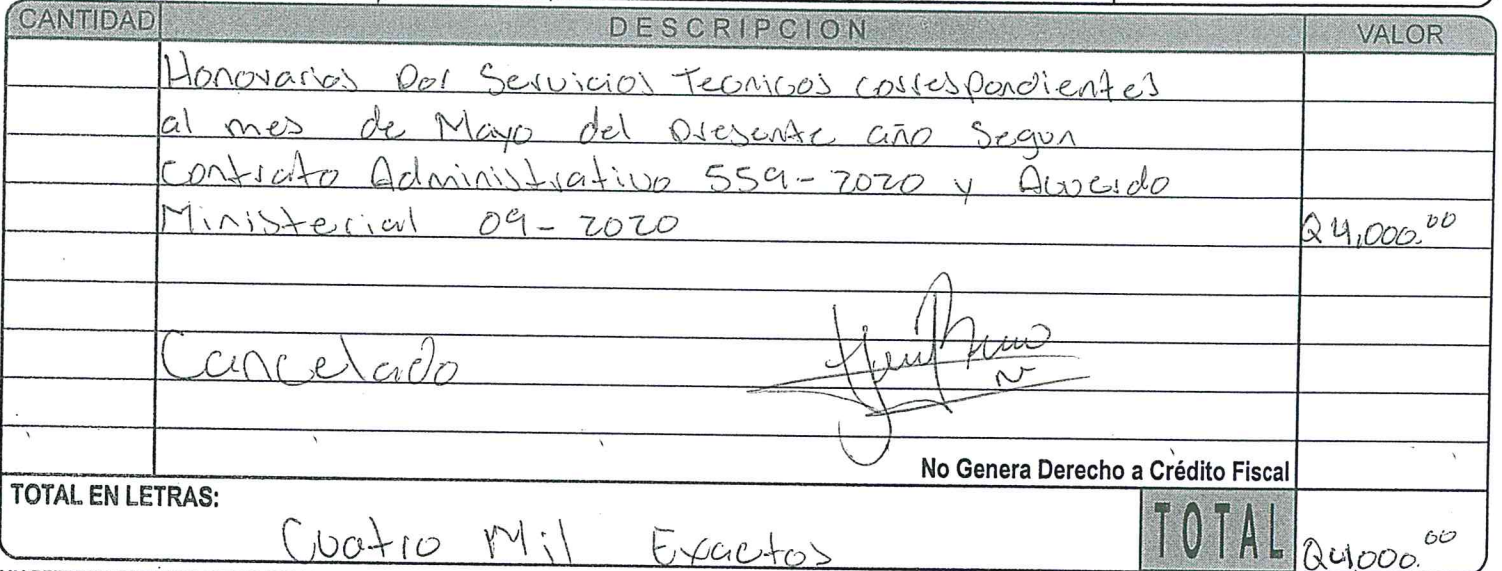 CANTIDAD DESCRIPCION VALOR
Honorarios Por Servicios Tecnicos correspondientes
al mes de Mayo del Presente año Segun
contrato Administrativo 559-2020 y Acuerdo
Ministerial 09-2020 Q4,000.00
Cancelado
No Genera Derecho a Crédito Fiscal
TOTAL EN LETRAS:
Cuatro Mil Exactos TOTAL Q4,000.00